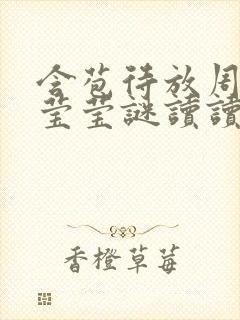 含苞待放周
莹莹謎讀讀
香橙草莓